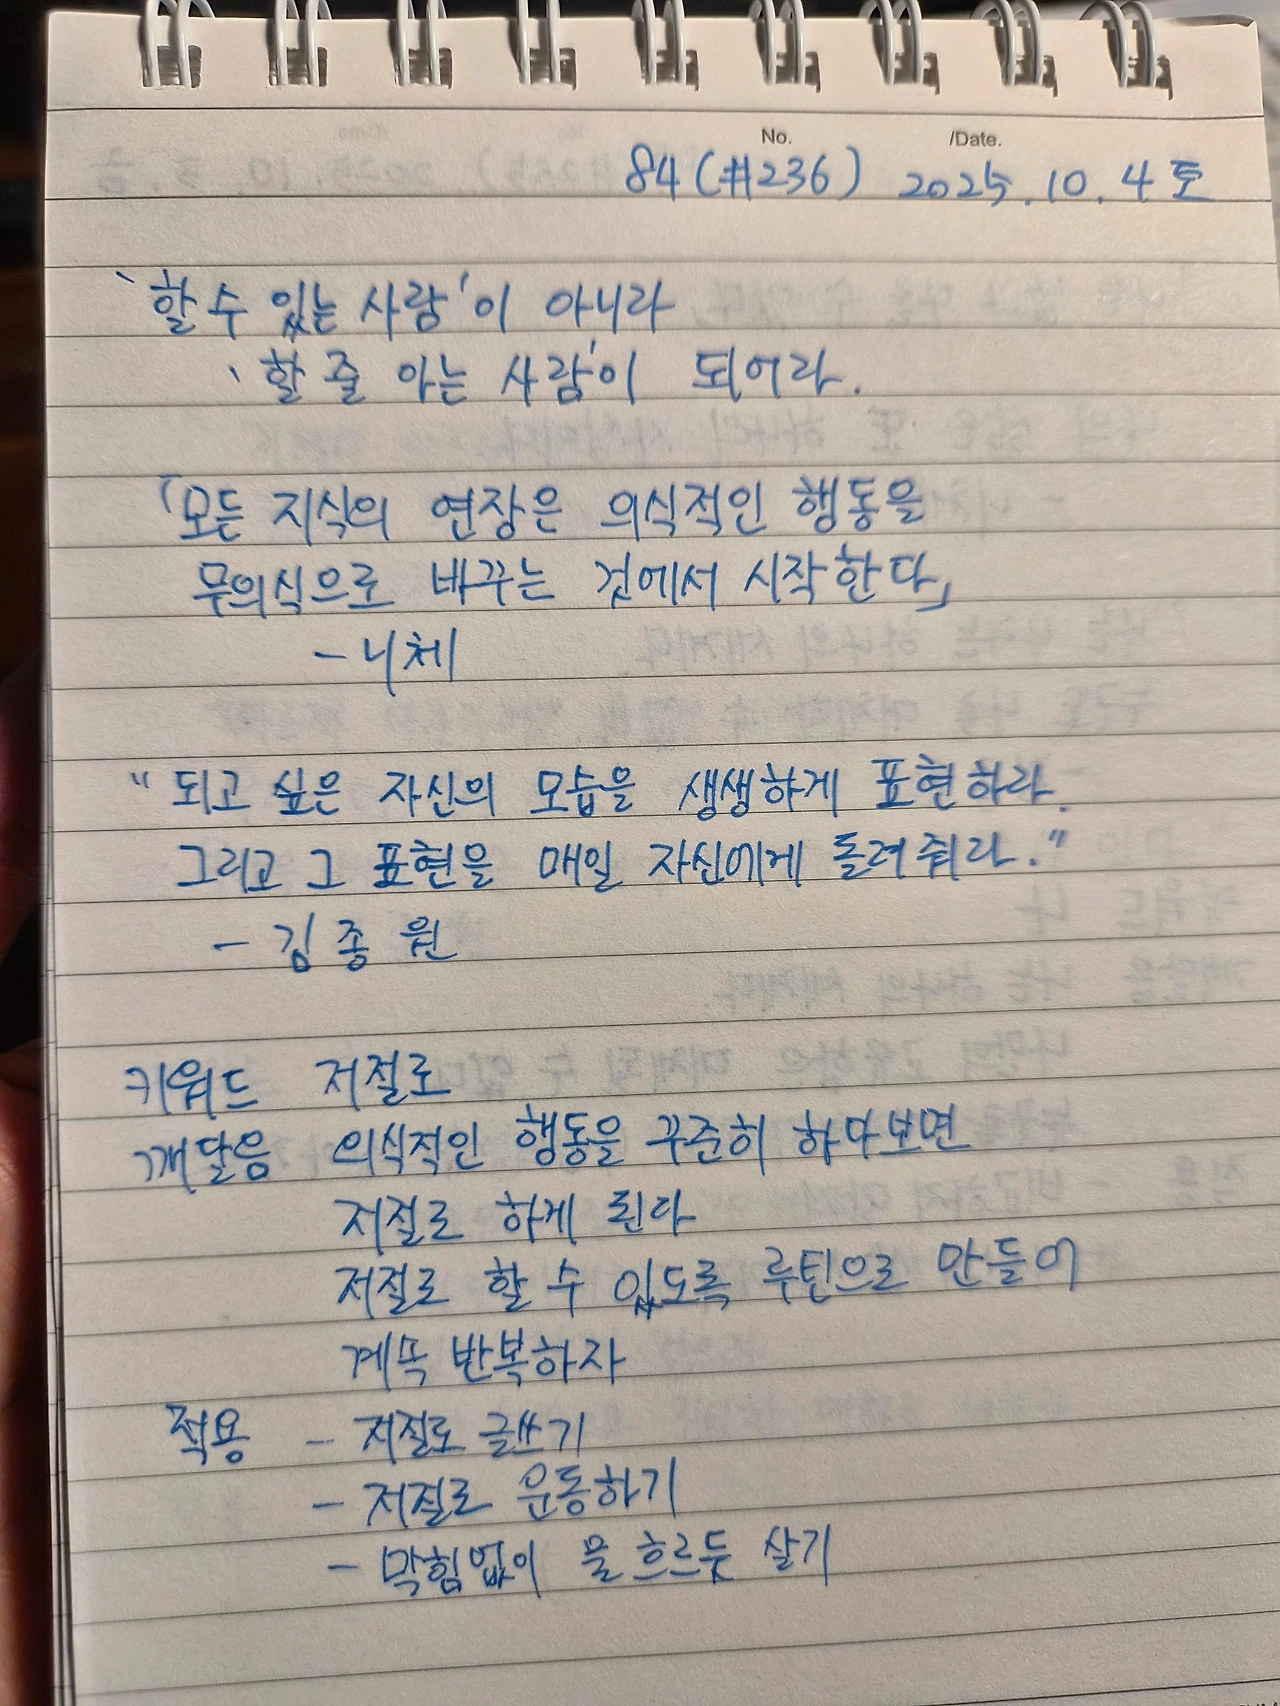 No. /Date.
84 (#236) 2025. 10. 4 토
'할 수 있는 사람'이 아니라
'할 줄 아는 사람'이 되어라.
「모든 지식의 연장은 의식적인 행동을
무의식으로 바꾸는 것에서 시작한다」
- 니체
"되고 싶은 자신의 모습을 생생하게 표현하라.
그리고 그 표현을 매일 자신에게 돌려줘라."
- 김종원
키워드 저절로
깨달음 의식적인 행동을 꾸준히 하다보면
저절로 하게 된다
저절로 할 수 있도록 루틴으로 만들어
계속 반복하자
적용 - 저절로 글쓰기
- 저절로 운동하기
- 막힘없이 물 흐르듯 살기